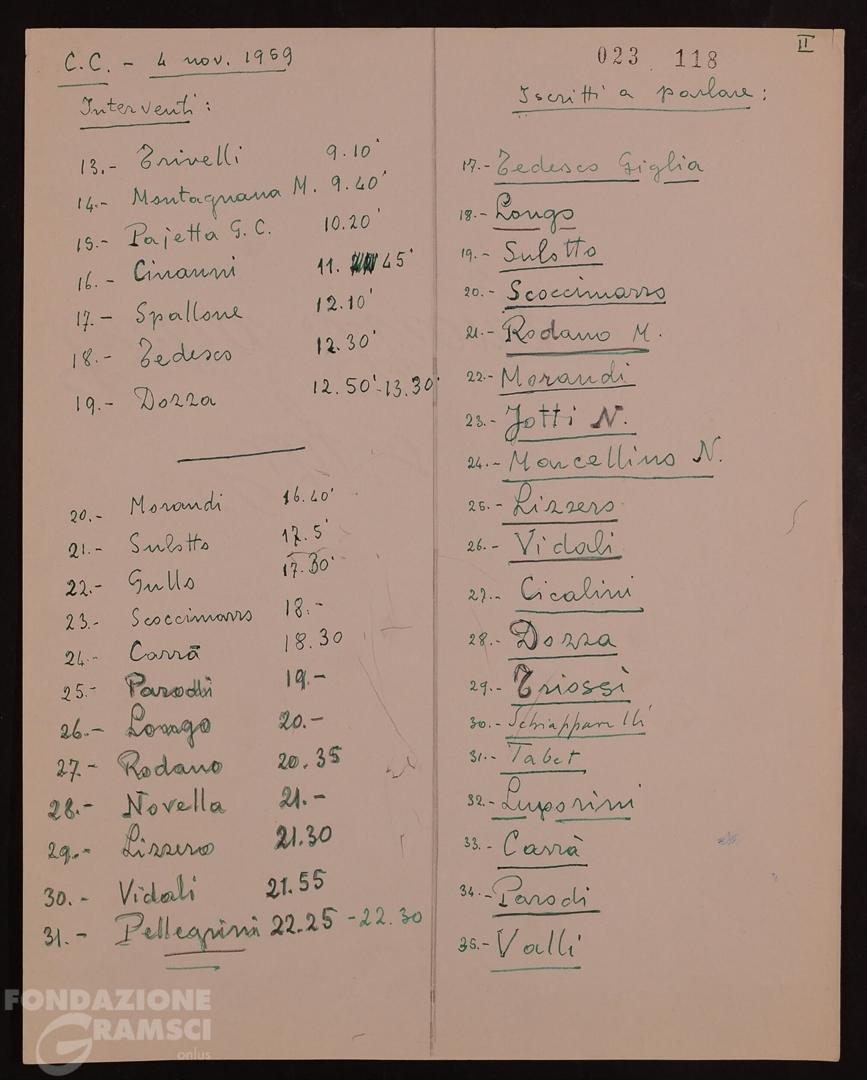 C.C. - 4 nov. 1959
Interventi:
13.- Trivelli 9.10'
14.- Montagnana M. 9.40'
15.- Pajetta G.C. 10.20'
16.- Cinanni 11. 45'
17.- Spallone 12.10'
18.- Tedesco 12.30'
19.- Dozza 12.50'-13.30'
20.- Morandi 16.40'
21.- Sulotto 17.5'
22.- Gullo 17.30'
23.- Scoccimarro 18.-
24.- Carrà 18.30
25.- Parodi 19.-
26.- Longo 20.-
27.- Rodano 20.35
28.- Novella 21.-
29.- Lizzero 21.30
30.- Vidali 21.55
31.- Pellegrini 22.25 - 22.30
II
023 118
Iscritti a parlare:
17.- Tedesco Giglia
18.- Longo
19.- Sulotto
20.- Scoccimarro
21.- Rodano M.
22.- Morandi
23.- Jotti N.
24.- Marcellino N.
25.- Lizzero
26.- Vidali
27.- Cicalini
28.- Dozza
29.- Triossi
30.- Schiapparelli
31.- Tabet
32.- Luporini
33.- Carrà
34.- Parodi
35.- Valli
FONDAZIONE
GRAMSCI
onlus